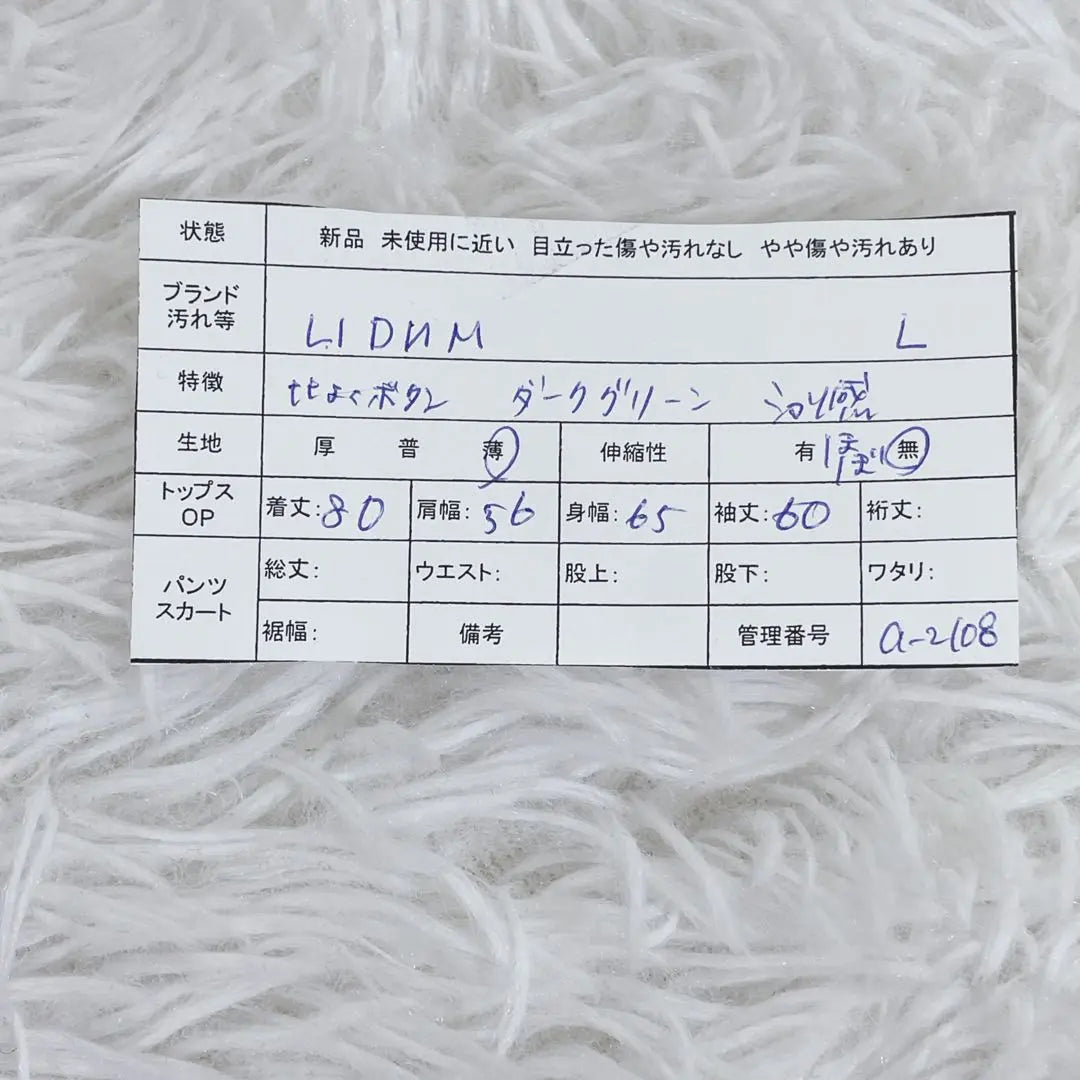 状態 新品 未使用に近い 目立った傷や汚れなし やや傷や汚れあり
ブランド
汚れ等 LIDNM L
特徴 ボタン ダークグリーン 感
生地 厚 普 薄 伸縮性 有 ほぼ 無
トップス
OP 着丈:80 肩幅:56 身幅:65 袖丈:60 裄丈:
パンツ
スカート 総丈: ウエスト: 股上: 股下: ワタリ:
裾幅: 備考 管理番号 a-2108